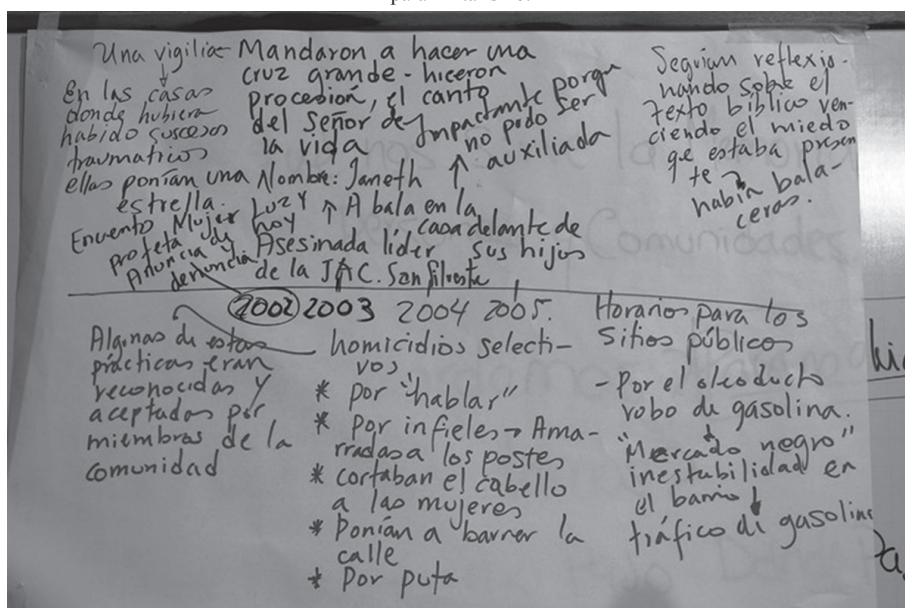 Una vigilia
En las casas
donde hubiera
habido suscesos
traumaticos
ellas ponían una
estrella.
Mandaron a hacer una
cruz grande - hiceron
procesión, el canto
del señor de
la vida
Impactante porque
no pudo ser
auxiliada
Nombre: Janeth
↑ A bala en la
casa delante de
sus hijos
Asesinada líder
de la JAC. San Silvestre
Encuento Mujer
profeta Luz y
Anuncia de hoy
denuncia
Seguían reflexio-
nando sobre el
texto bíblico ven-
ciendo el miedo
qe estaba presen
te →
habín bala-
ceras.
Comunidades
2002 2003 2004 2005.
Algunas de estas
prácticas eran
reconocidas y
aceptadas por
miembros de la
comunidad
homicidios selecti-
vos
* por "hablar"
* Por infieles → Ama-
rradas a los postes
* cortaban el cabello
a las mujeres
* Ponían a barrer la
calle
* Por puta
Horarios para los
Sitios públicos
- Por el oleoducto
robo de gasolina.
"Mercado negro"
inestabilidad en
el barrio
tráfico de gasolina